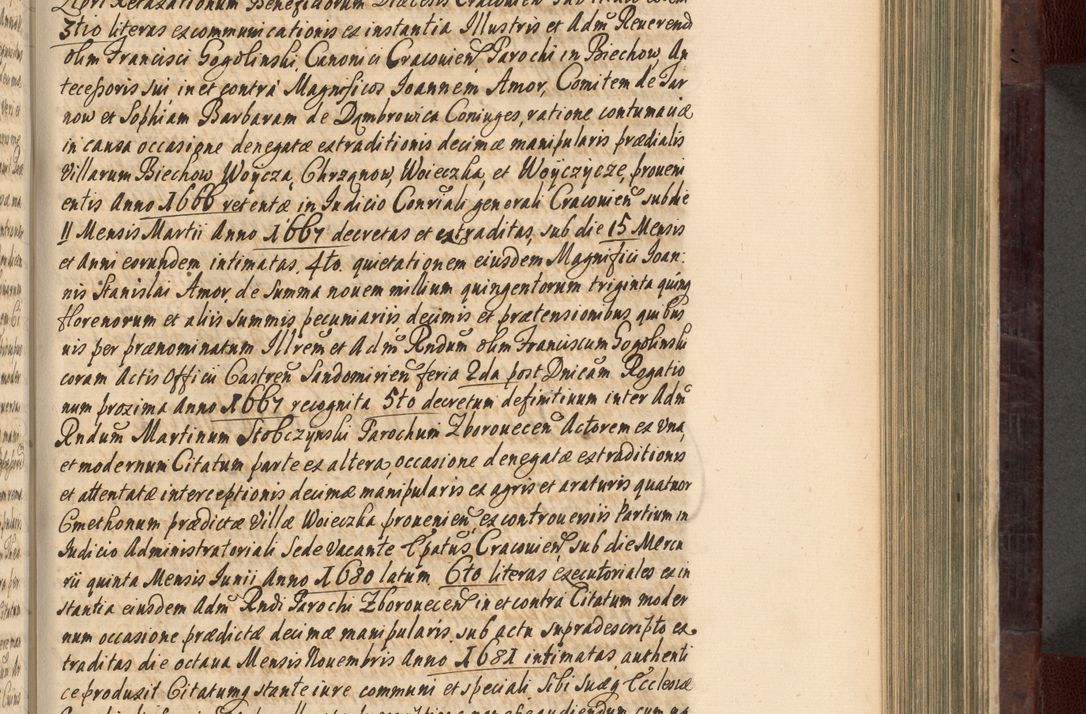 Libri Retaxationum Beneficiorum Diæcesis Cracovien
3tio literas excommunicationis ex instantia Illustris et Adm Reverend
olim Francisci Gogolinski Canonici Cracovien Parochi in Biechow, An
tecessoris sui in et contra Magnificos Joannem Amor, Comitem de Tar
now et Sophiam Barbaram de Dąmbrowica Coniuges, ratione contumaciæ
in causa occasione denegatæ extraditionis decimæ manipularis prædialis
Villarum Biechow, Woycza, Chrząnow, Woieczka, et Woyczycze, proveni
entis Anno 1666 retentæ in Iudicio Conriali generali Cracovien sub die
11 Mensis Martii Anno 1667 decretas et extraditas, sub die 15 Mensis
et Anni eorundem intimatas. 4to. quietationem eiusdem Magnifici Joan:
nis Stanislai Amor de summa novem millium quingentorum triginta quinq
florenorum et aliis summis pecuniariis decimis et prætensionibus quibus
vis per prænominatum Illrem et Adm Rndum olim Franciscum Gogolinski
coram Actis Officii Castren Sandomirien feria 2da post Dnicam Rogatio
num proxima Anno 1667 recognita 5to decretum definitivum inter Adm
Rndum Martinum Stobczynski Parochum Zborovecen Actorem ex una,
et modernum Citatum parte ex altera, occasione denegatæ extraditionis
et attentatæ interceptionis decimæ manipularis ex agris et araturis quatuor
Cmethonum prædictæ Villæ Woieczka provenien, ex controversiis Partium in
Iudicio Administratoriali Sede Vacante Epatus Cracovien, sub die Mercu
rii quinta Mensis Iunii Anno 1680 latum 6to literas executoriales ex in
stantia eiusdem Adm Rndi Parochi Zborovecen in et contra Citatum moder
num occasione prædictæ decimæ manipularis sub actu supradescripto ex
traditas die octava Mensis Novembris Anno 1681 intimatas authenti
ce produxit Citatumq stante iure communi et speciali sibi suæq Ecclesiæ